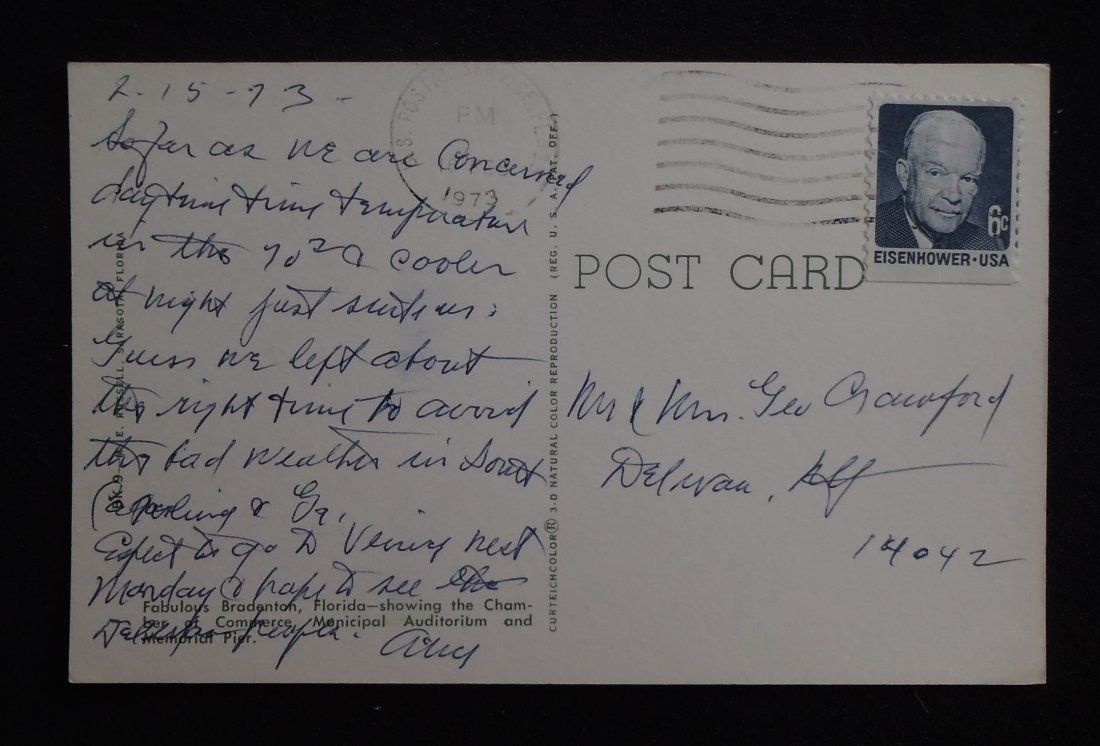 2-15-73-
So far as we are concerned
daytime time temperature
in the 70s & cooler
at night just suits us.
Guess we left about
the right time to avoid
the bad weather in South
Carolina & Ga.
Expect to go to Venice next
Monday & hope to see the
people.
Fabulous Bradenton, Florida—showing the Cham-
ber of Commerce, Municipal Auditorium and
Memorial Pier.
RUSSELL, SARASOTA, FLORIDA
U.S. POSTAL SERVICE
PM
1973
CURTEICHCOLOR® 3-D NATURAL COLOR REPRODUCTION (REG. U. S. A. PAT. OFF.)
POST CARD
6c
EISENHOWER·USA
Mr & Mrs. Geo Crawford
Delevan, NY
14042